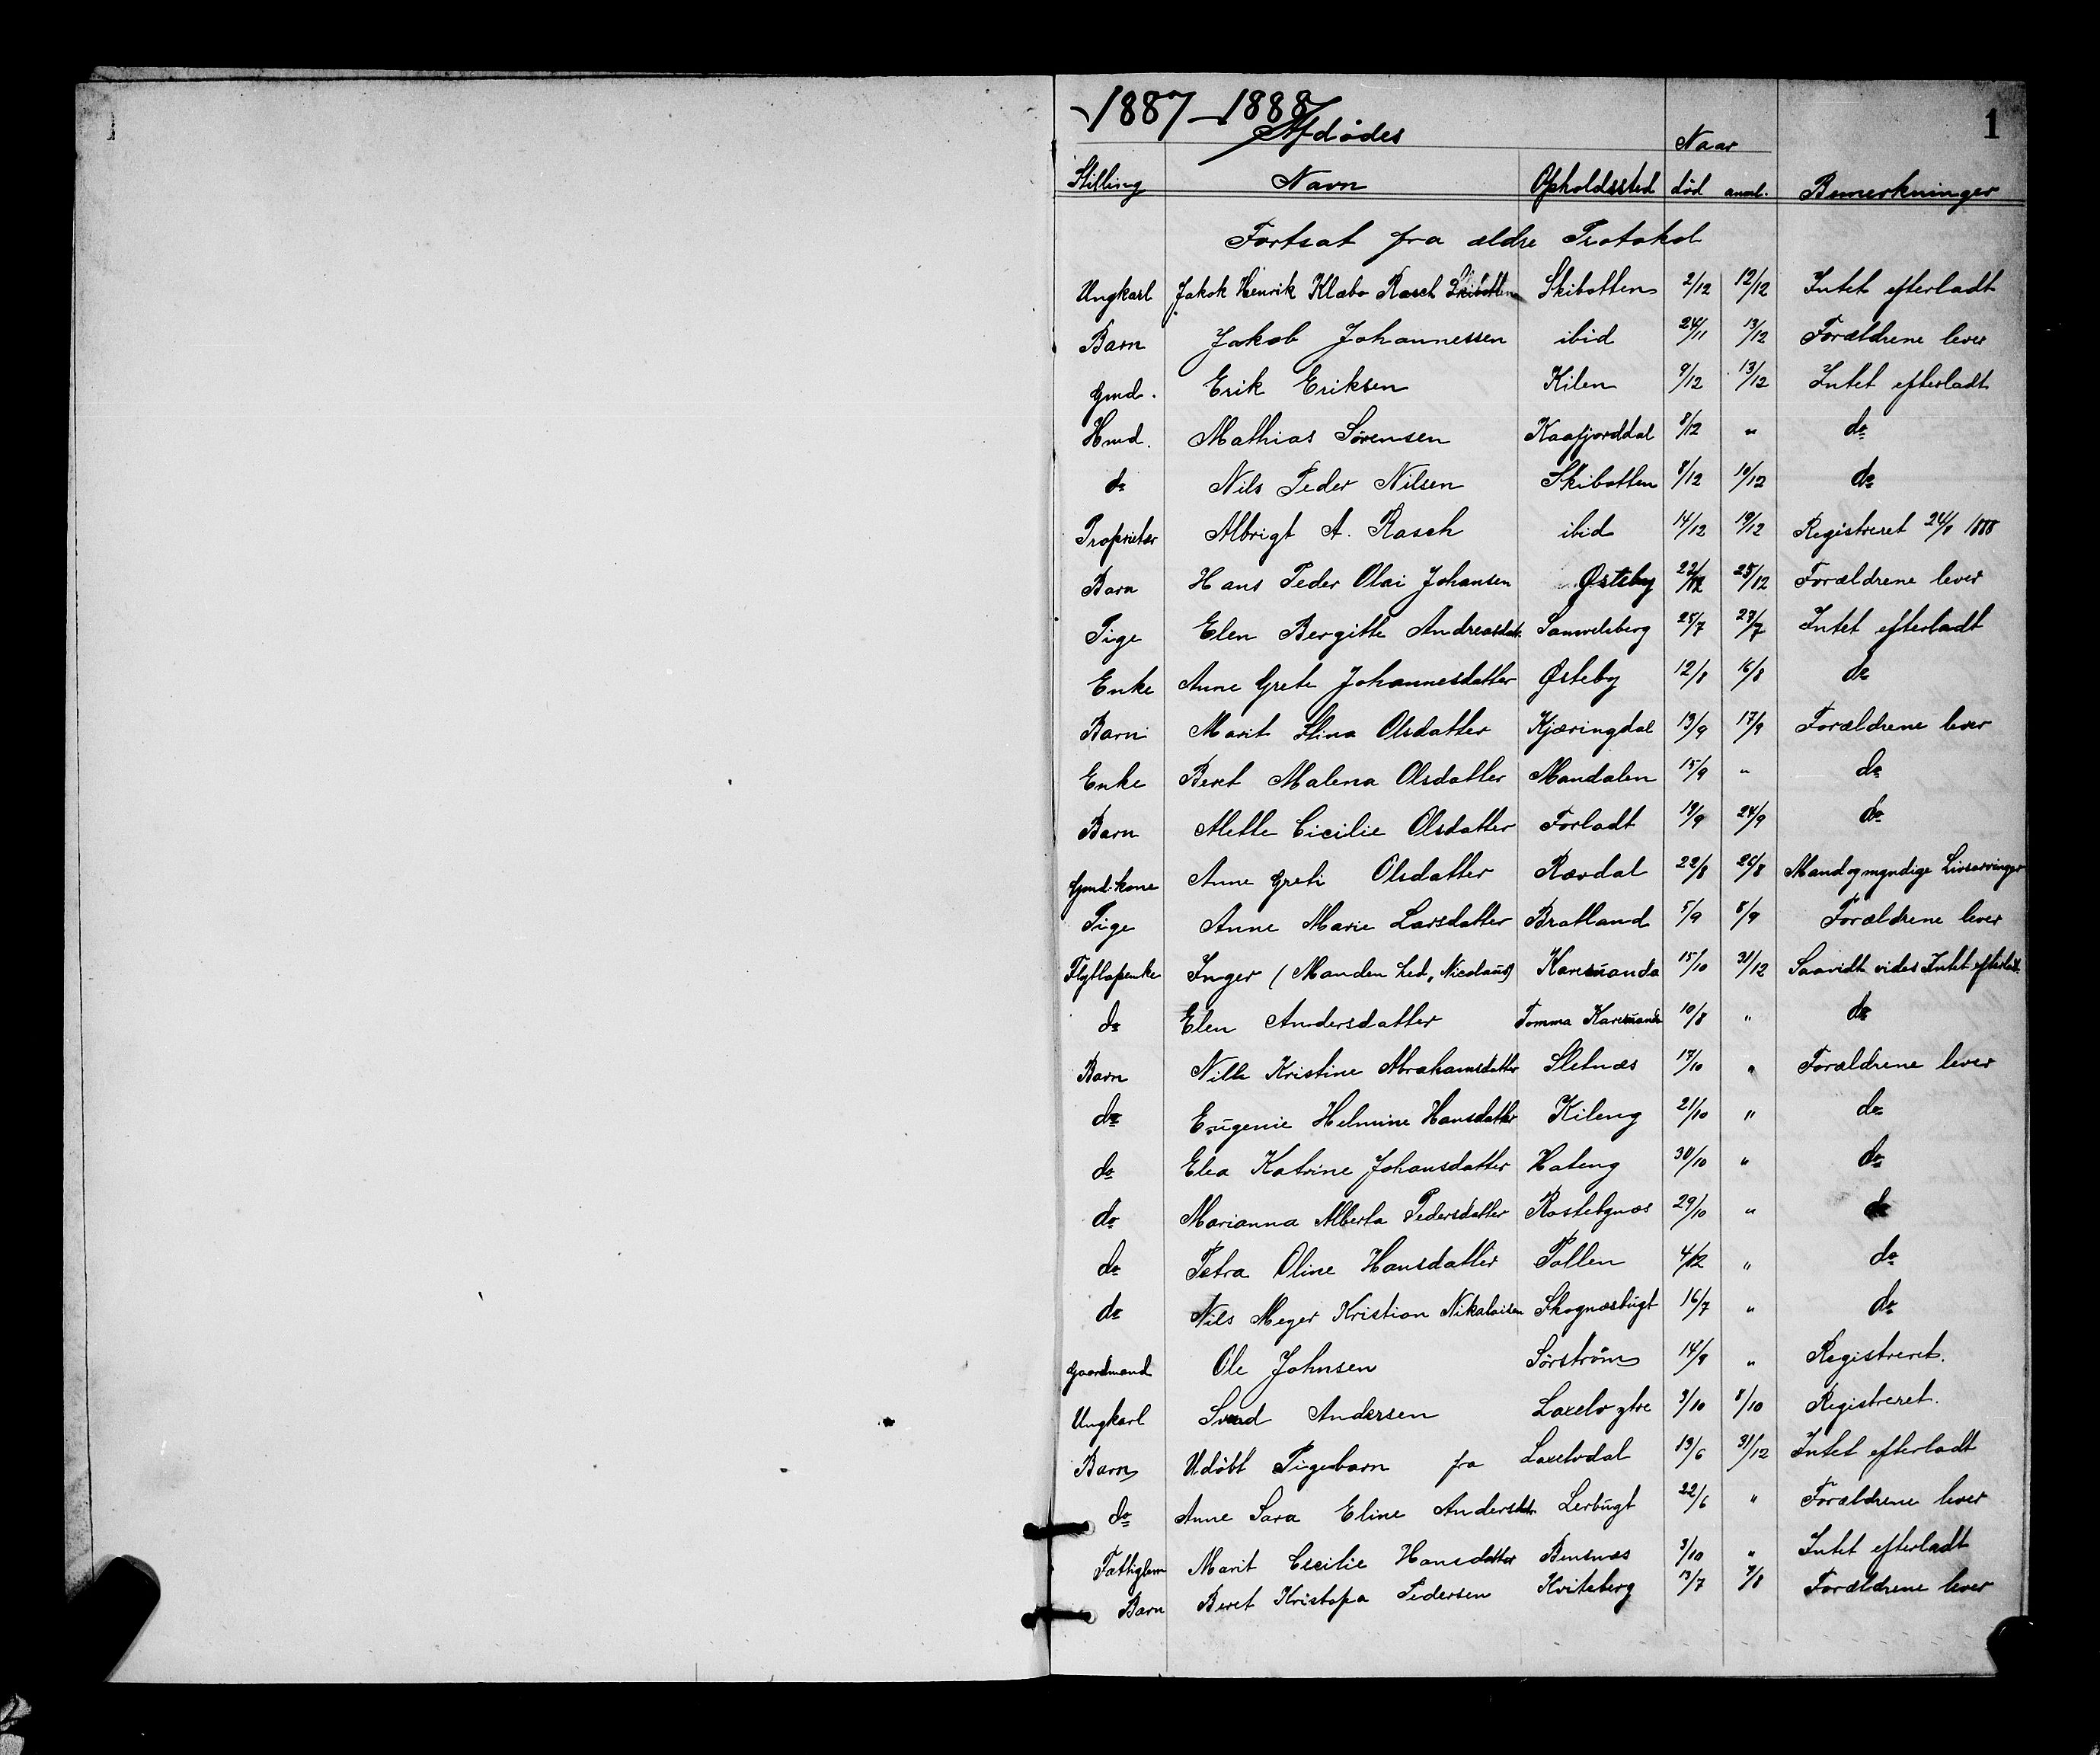 1887-1888
1
Afdødes
Naar
Stilling Navn Opholdssted død anml. Bemerkninger
Fortsat fra ældre Protokol
Ungkarl Jakob Henrik Klæbo Rasch Skibotten Skibotten 2/12 12/12 Intet efterladt
Barn Jakob Johannessen ibid 24/11 13/12 Forældrene lever
Gmd. Erik Eriksen Kilen 9/12 13/12 Intet efterladt
Hmd. Mathias Sørensen Kaafjorddal 8/12 " do
do Nils Peder Nilsen Skibotten 8/12 10/12 do
Proprietær Albrigt A. Rasch ibid 14/12 19/12 Registreret 24/8 1888
Barn Hans Peder Olai Johansen Østeby 22/12 25/12 Forældrene lever
Pige Elen Bergitte Andreasdatr. Samuelsberg 25/7 29/7 Intet efterladt
Enke Anne Grete Johannesdatter Østeby 12/8 16/8 do
Barn Marit Stina Olsdatter Kjæringdal 13/9 17/9 Forældrene lever
Enke Beret Malena Olsdatter Mandalen 15/9 " do
Barn Mette Cicilie Olsdatter Forladt 19/9 24/9 do
Gmd.kone Anne Greti Olsdatter Rævdal 22/8 26/8 Mand og myndige Livsarvinger
Pige Anne Marie Larsdatter Bratland 5/9 8/9 Forældrene lever
Flytlapenke Inger (Manden hed, Nicolaus) Karesuanda 15/10 31/12 Saavidt vides Intet efterladt
do Elen Andersdatter Tomma Karesuando 10/8 " do
Barn Nille Kristine Abrahamsdatter Sletnæs 17/10 " Forældrene lever
do Eugenie Helmine Hansdatter Kileng 21/10 " do
do Elea Katrine Johansdatter Hateng 30/10 " do
do Marianna Alberta Pedersdatter Rastebynæs 29/10 " do
do Petra Oline Hansdatter Pollen 4/12 " do
do Nils Meyer Kristian Nikolaisen Skognæsbugt 16/7 " do
Gaardmand Ole Johnsen Sørstrøm 14/9 " Registreret.
Ungkarl Svend Andersen Laxelv ytre 3/10 8/10 Registreret.
Barn Udøbt Pigebarn fra Laxelvdal 13/6 31/12 Intet efterladt
do Anne Sara Eline Andersdtr. Lerbugt 22/6 " Forældrene lever
Fattiglem Marit Cecilie Hansdatter Bensnæs 3/10 " Intet efterladt
Barn Beret Kristofa Pedersen Kviteberg 13/7 9/8 Forældrene lever